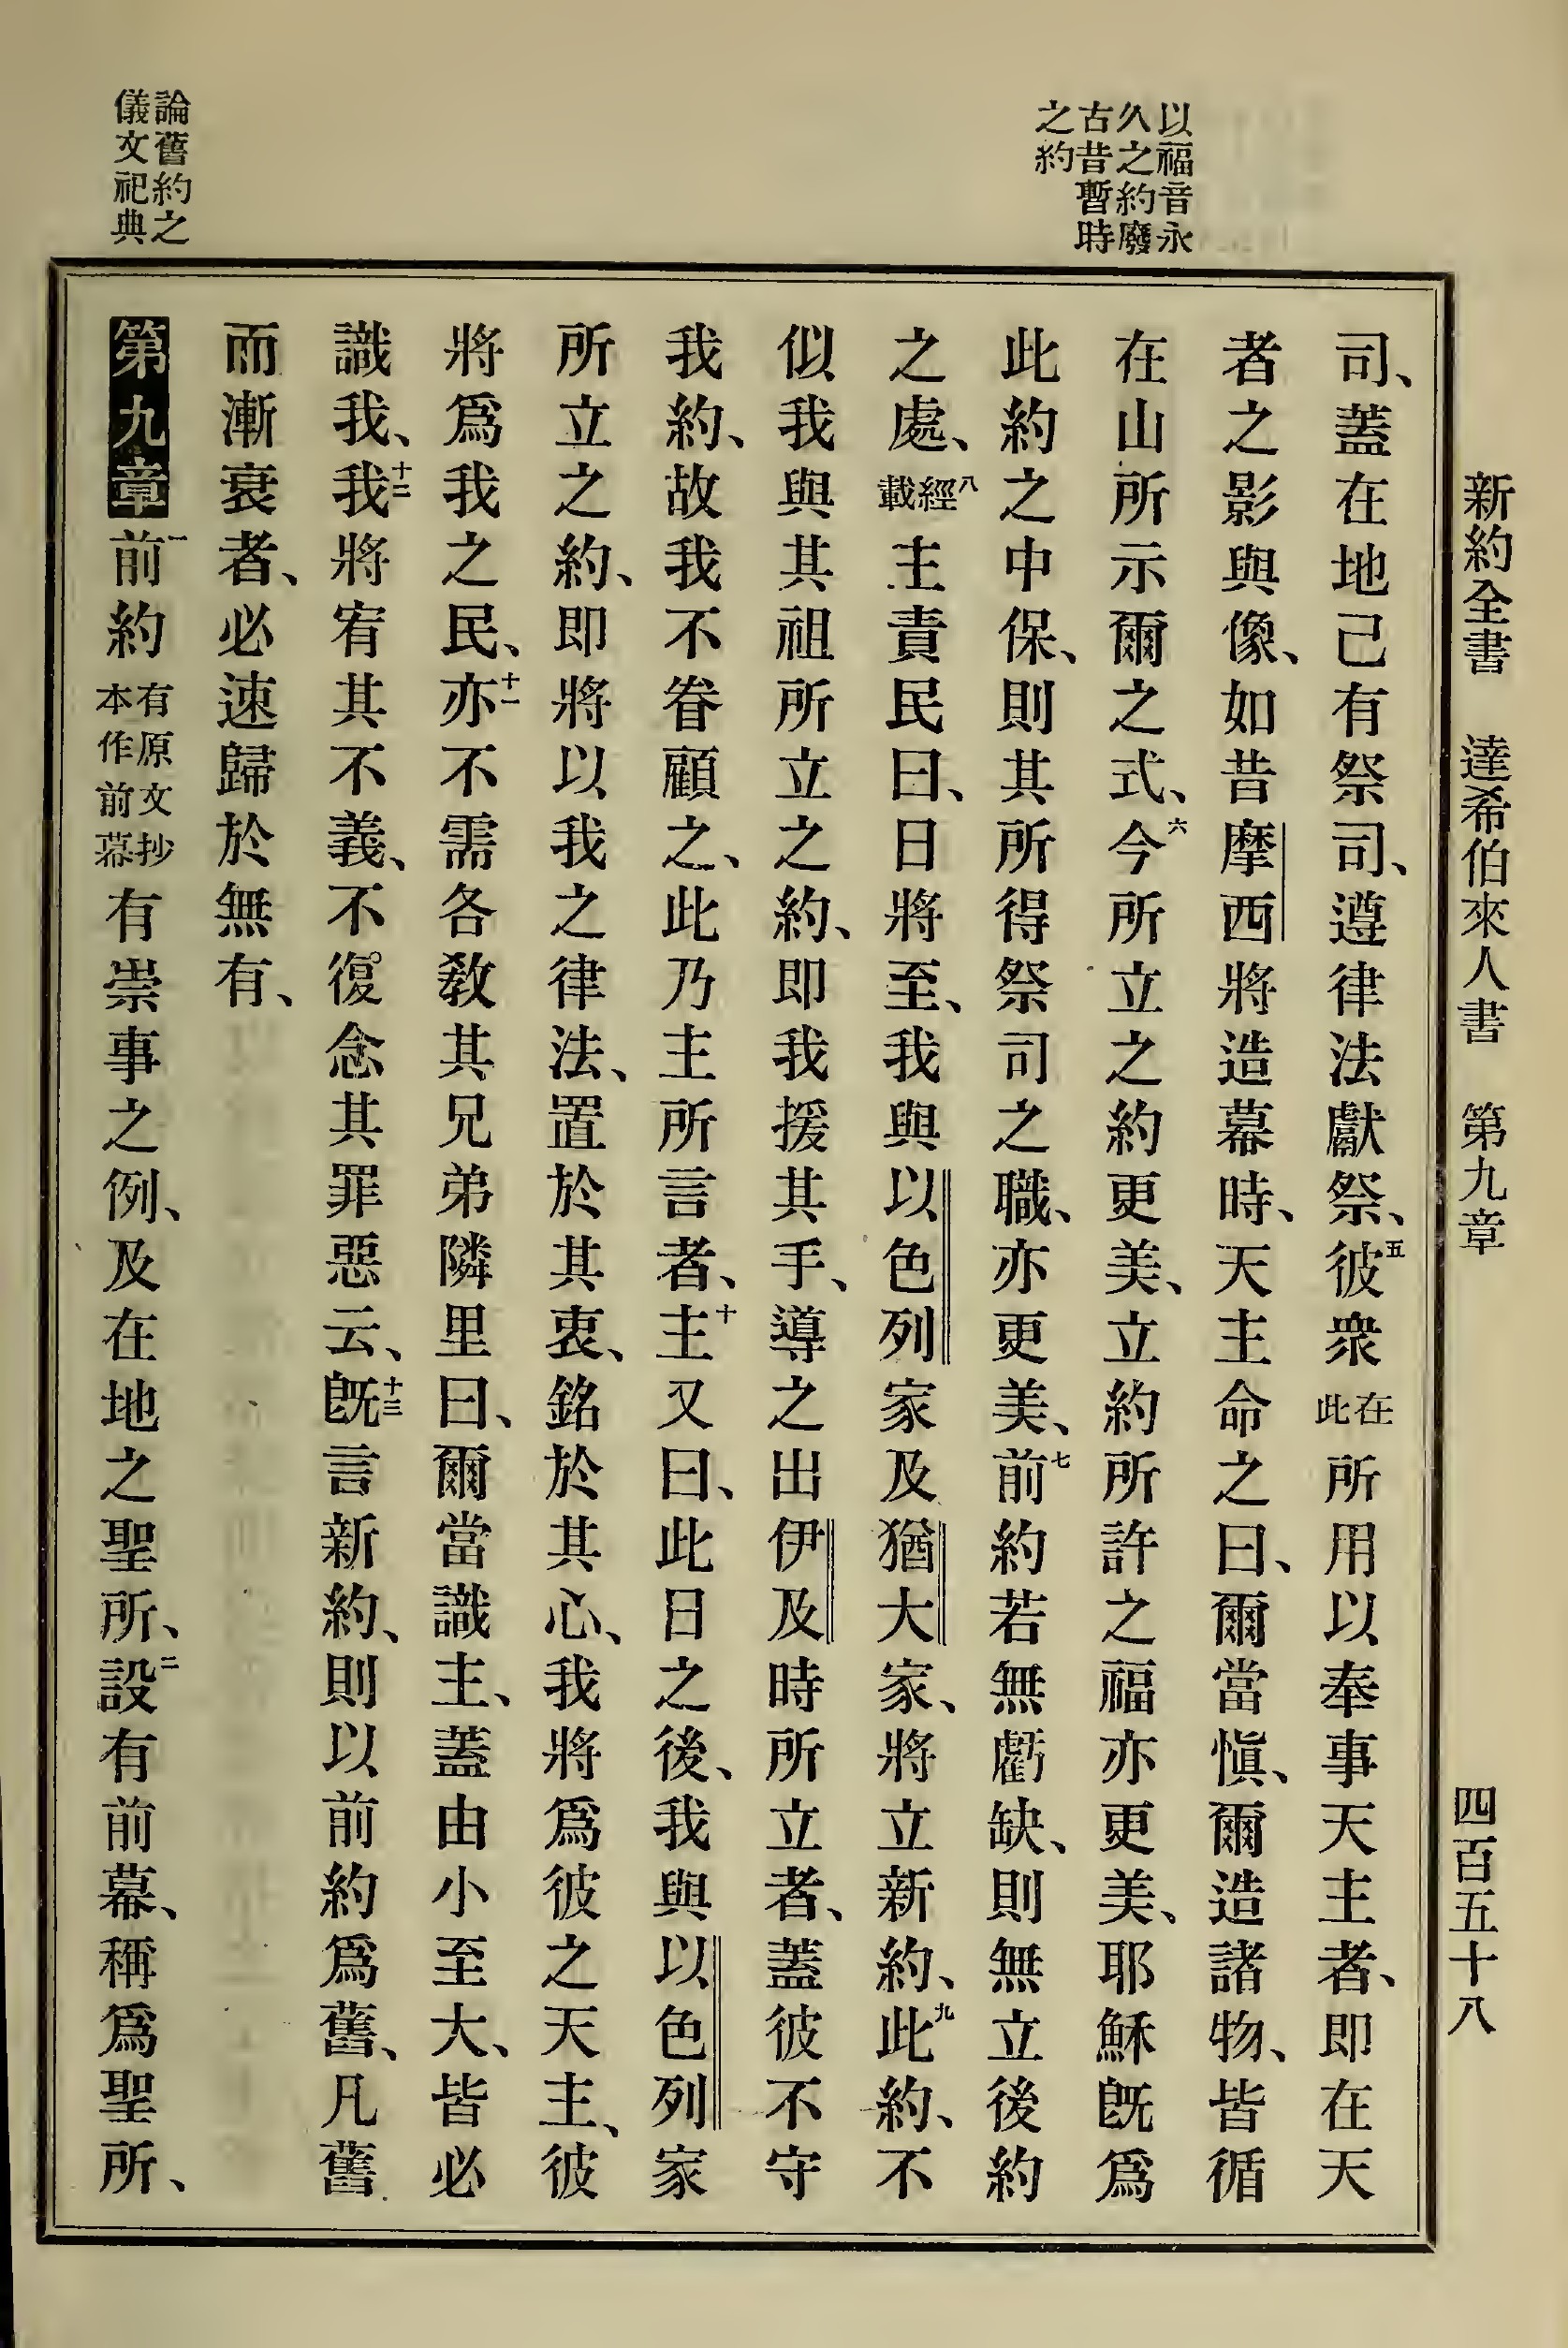 新約全書 達希伯來人書 第九章 四百五十八
以福音永
久之約廢
古昔暫時
之約
論舊約之
儀文祀典
司、蓋在地已有祭司、遵律法獻祭、五彼衆在此所用以奉事天主者、即在天
者之影與像、如昔摩西將造幕時、天主命之曰、爾當愼、爾造諸物、皆循
在山所示爾之式、六今所立之約更美、立約所許之福亦更美、耶穌旣爲
此約之中保、則其所得祭司之職、亦更美、七前約若無虧缺、則無立後約
之處、八經載主責民曰、日將至、我與以色列家及猶大家、將立新約、九此約、不
似我與其祖所立之約、即我援其手、導之出伊及時所立者、蓋彼不守
我約、故我不眷顧之、此乃主所言者、十主又曰、此日之後、我與以色列家
所立之約、即將以我之律法、置於其衷、銘於其心、我將爲彼之天主、彼
將爲我之民、十一亦不需各敎其兄弟隣里曰、爾當識主、蓋由小至大、皆必
識我、十二我將宥其不義、不復念其罪惡云、十三旣言新約、則以前約爲舊、凡舊
而漸衰者、必速歸於無有、
第九章 一前約有原文抄本作前幕有崇事之例、及在地之聖所、二設有前幕、稱爲聖所、